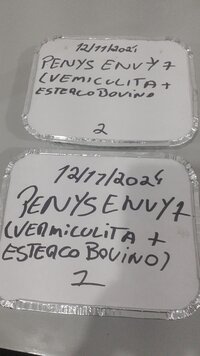 12/11/2024
PENYS ENVY 7
(VEMICULITA +
ESTERCO BOVINO
2
12/11/2024
PENYS ENVY 7
(VERMICULITA +
ESTERCO BOVINO)
2